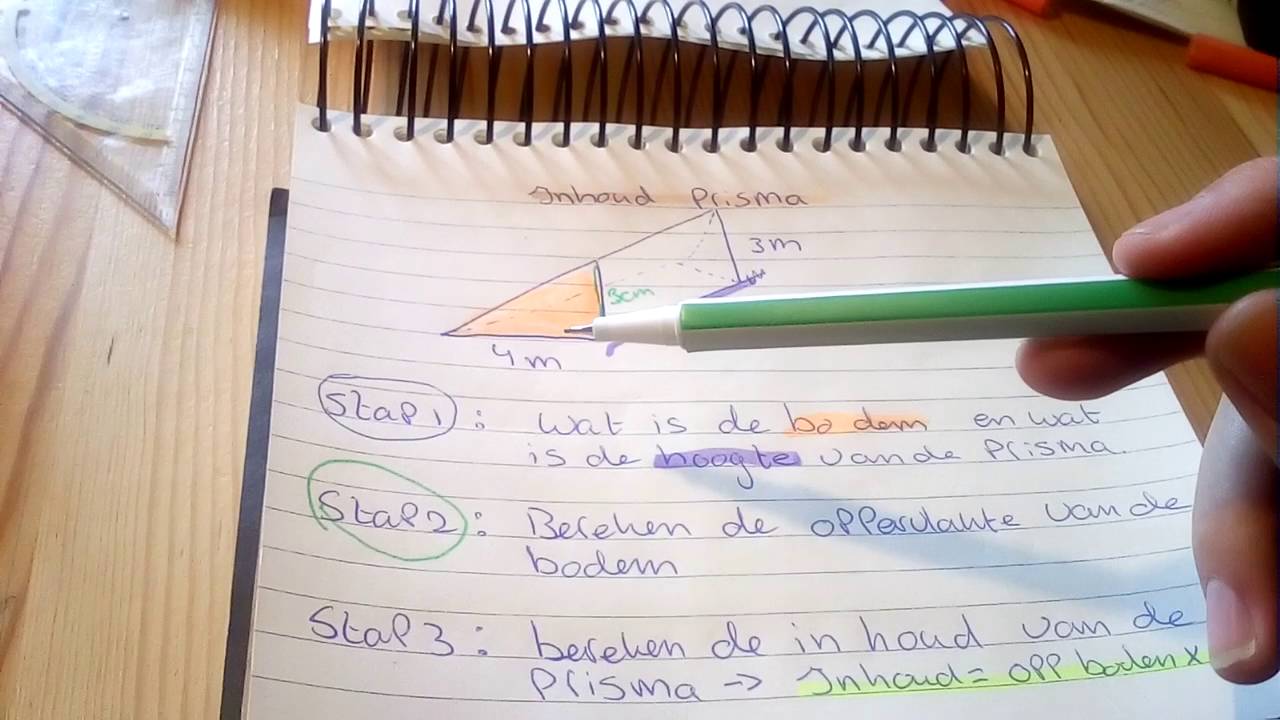 Inhoud Prisma
3m
3cm
4m
Stap 1: Wat is de bodem en wat
is de hoogte van de Prisma.
Stap 2: Bereken de oppervlakte van de
bodem
Stap 3: bereken de in houd van de
Prisma -> Inhoud = opp bodem x